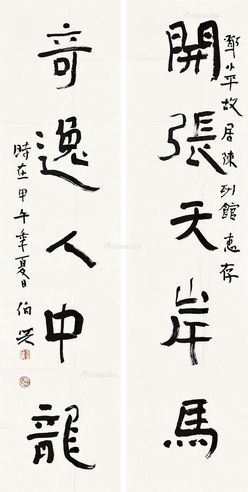 開張天岸馬
鄧小平故居陳列館惠存
奇逸人中龍
時在甲午年夏日伯兴